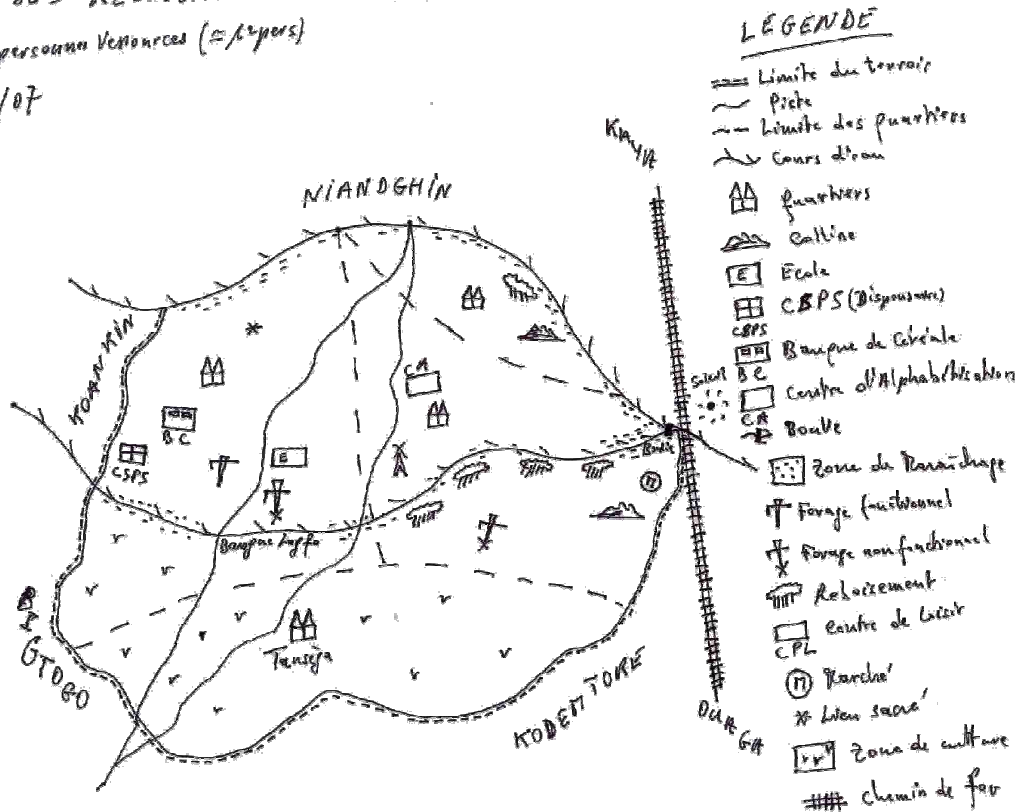 personnes ressources (≃ 12 pers)
/07
LÉGENDE
Limite du terroir
Piste
Limite des quartiers
Cours d'eau
quartiers
Colline
E École
CSPS (Dispensaire)
CSPS
Banque de Céréale
BC
Centre d'Alphabétisation
CA
Boulie
Zone de Maraîchage
Forage fonctionnel
Forage non fonctionnel
Reboisement
Centre de Loisir
CPL
M Marché
Lieu sacré
Zone de culture
chemin de fer
KAYA
NIANDGHIN
KOANKIN
CA
BC
CSPS
E
Soleil
Boulie
M
Tansèga
GTOGO
KODEMTORE
OUAGA